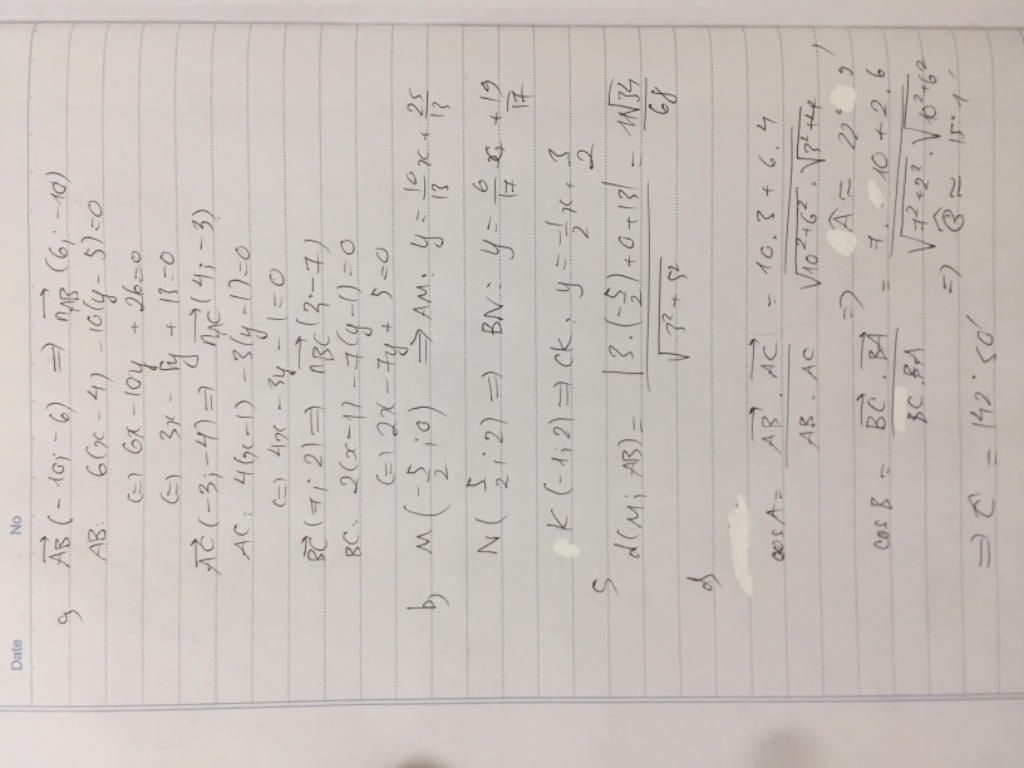 Date No
a) AB (-10; -6) => nAB (6; -10)
AB: 6(x-4) -10(y-5)=0
(=) 6x -10y + 26=0
(=) 3x - 5y + 13=0
AC (-3; -4) => nAC (4; -3)
AC: 4(x-1) -3(y-1)=0
(=) 4x - 3y - 1=0
BC (7; 2) => nBC (2; -7)
BC: 2(x-1) -7(y-1)=0
(=) 2x - 7y + 5=0
b) M (-5/2; 0) => AM: y = 10/13 x + 25/13
N (5/2; 2) => BN: y = 6/17 x + 19/17
K (-1; 2) => CK: y = -1/2 x + 3/2
c) d(M; AB) = |3.(-5/2) + 0 + 13| / √3²+5² = 11√34 / 68
d)
cos A = AB . AC / AB . AC = 10.3 + 6.4 / √10²+6² . √3²+4²
=> A ≈ 22° 9'
cos B = BC . BA / BC . BA = 7 . 10 + 2 . 6 / √7²+2² . √10²+6²
=> B ≈ 15° 1'
=> C = 142° 50'